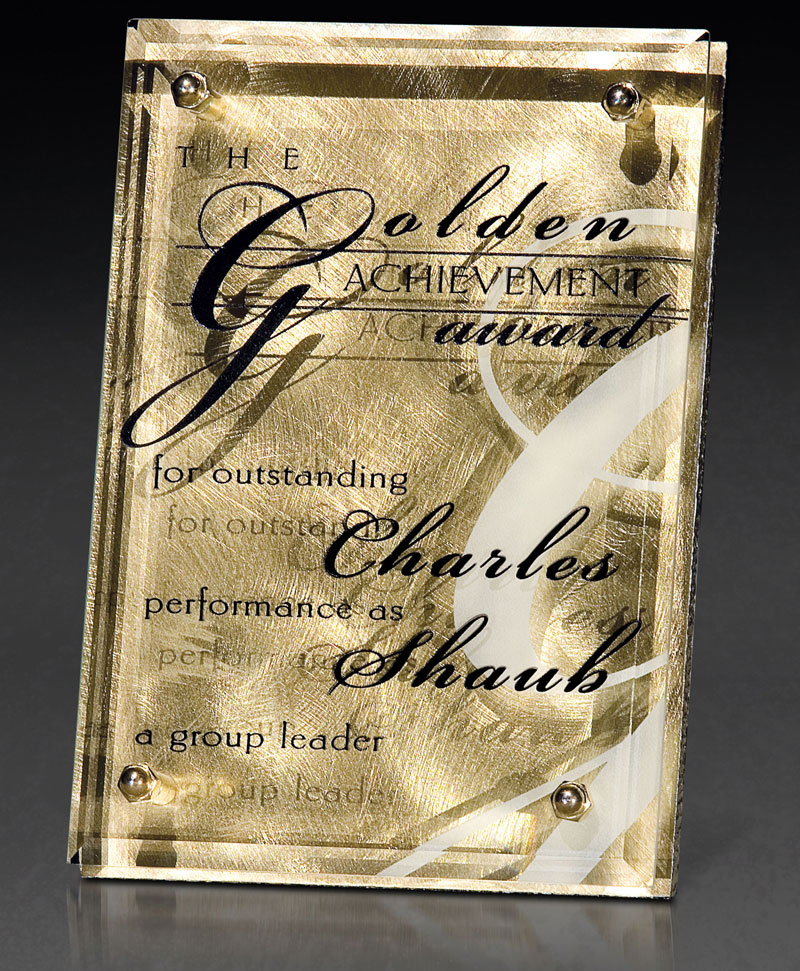 THE
Golden
ACHIEVEMENT
award
for outstanding
Charles
performance as
Shaub
a group leader